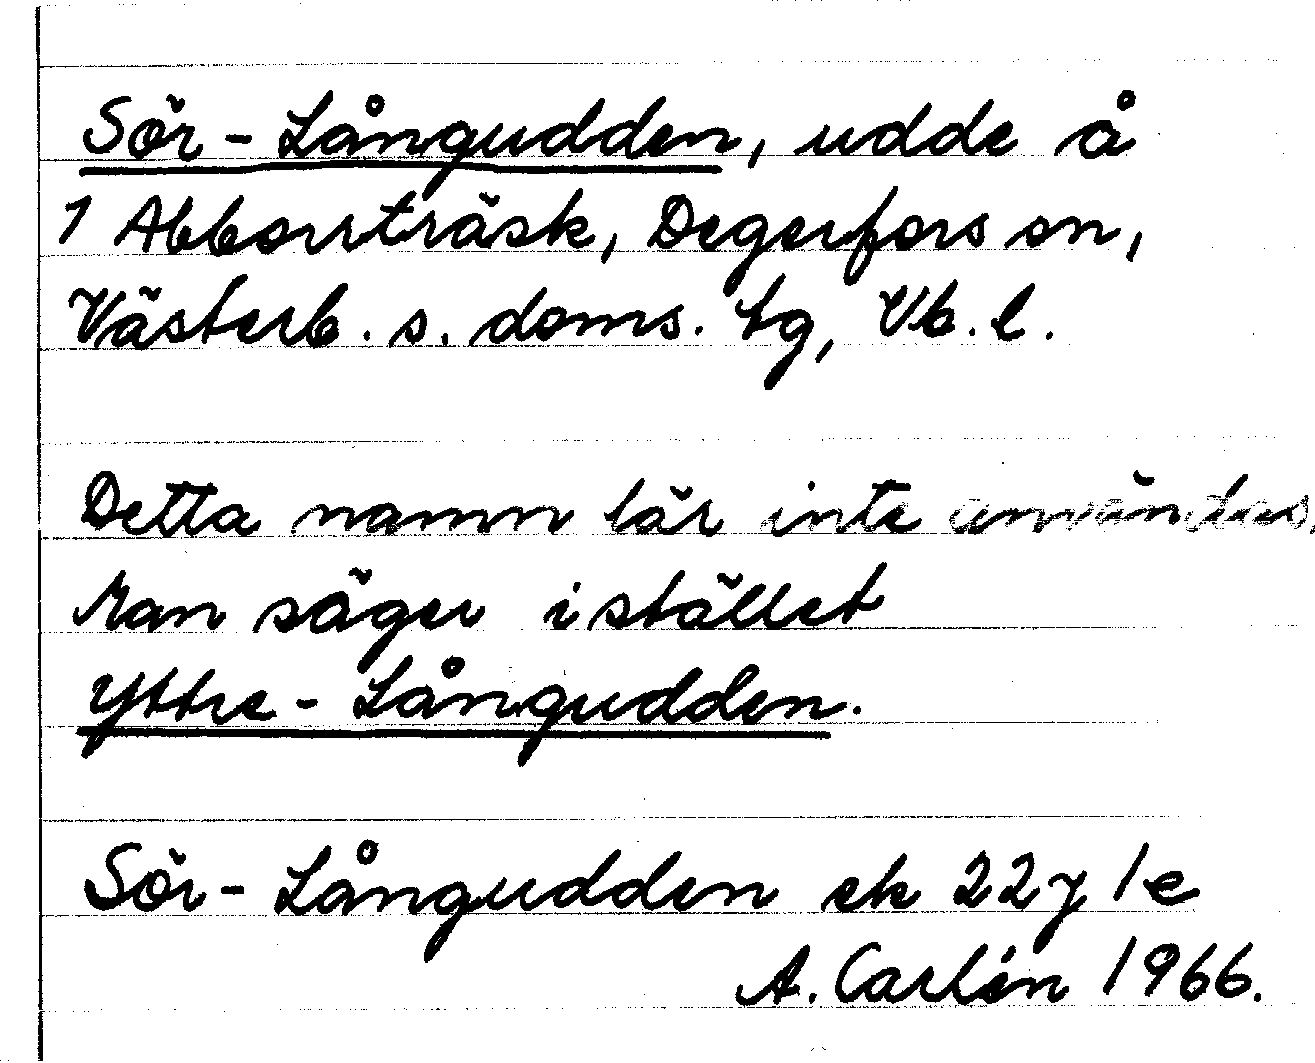 Sör-Långudden, udde å
1 Abborrträsk, Degerfors sn,
Västerb. s. doms. tg, Vb. l.
Detta namn lär inte användas.
Man säger istället
Yttre-Långudden.
Sör-Långudden ek 22 j 1 e
A. Carlén 1966.